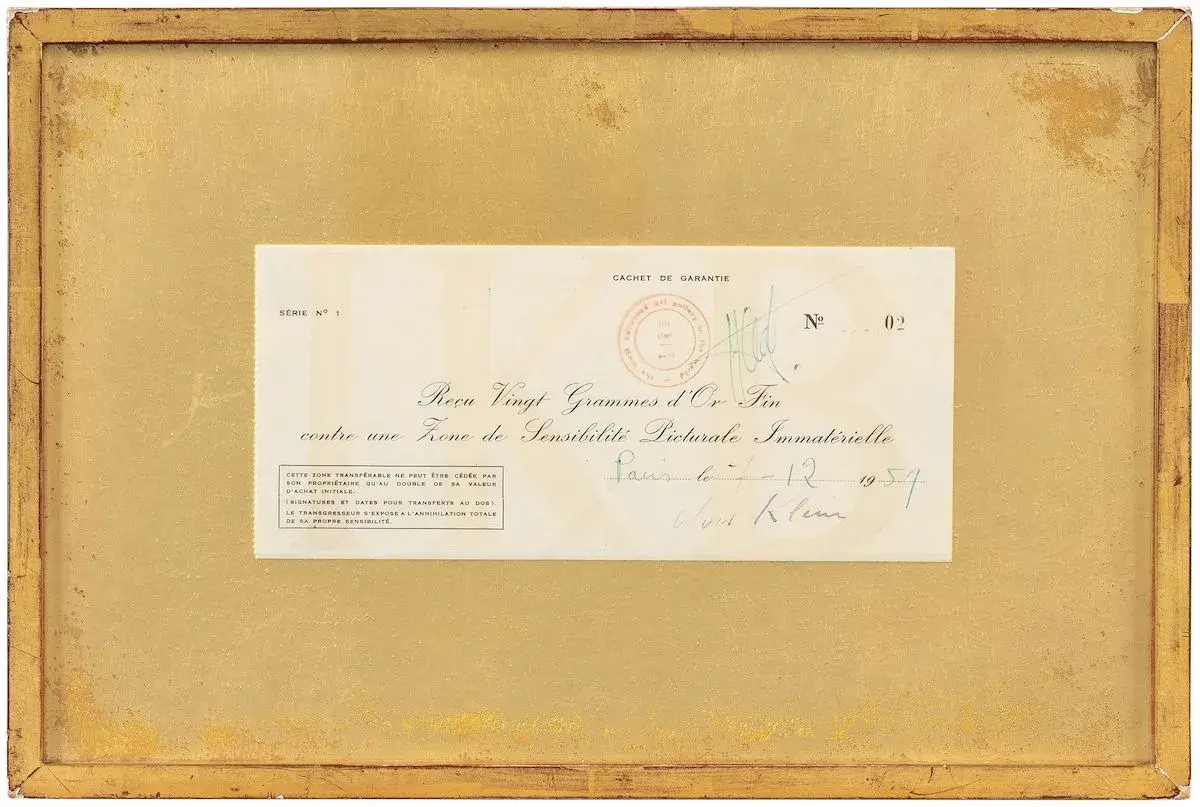 CACHET DE GARANTIE
SÉRIE Nº 1
Nº 02
the most advanced art gallery in the world
iris
clert
paris
Reçu Vingt Grammes d'Or Fin
contre une Zone de Sensibilité Picturale Immatérielle
Paris le 7-12 1959
Yves Klein
CETTE ZONE TRANSFÉRABLE NE PEUT ÊTRE CÉDÉE PAR
SON PROPRIÉTAIRE QU'AU DOUBLE DE SA VALEUR
D'ACHAT INITIALE.
(SIGNATURES ET DATES POUR TRANSFERTS AU DOS).
LE TRANSGRESSEUR S'EXPOSE A L'ANNIHILATION TOTALE
DE SA PROPRE SENSIBILITÉ.